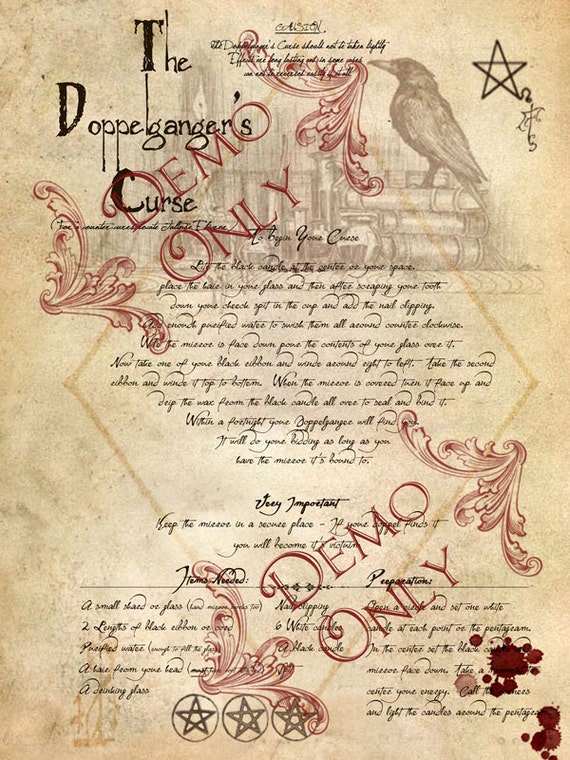 The
Doppelganger's
Curse
CAUSION
The Doppelganger's Curse should not be taken lightly
Effects are long lasting and in some cases
can not be reversed easily if at all.
To Begin Your Curse
Lite the black candle at the center of your space.
place the hair in your glass and then after scraping your tooth
down your cheeck spit in the cup and add the nail clipping.
Add enough purified water to swish them all around counter clockwise.
With the mirror is face down pour the contents of your glass over it.
Now take one of your black ribbon and winde around right to left. Take the second
ribbon and winde it top to bottom. When the mirror is covered turn it face up and
drip the wax from the black candle all over to seal and bind it.
Within a fortnight your Doppelganger will find you.
It will do your bidding as long as you
have the mirror it's bound to.
Very Important
Keep the mirror in a secure place - If your doppel finds it
you will become it's victim.
Items Needed:
A small shard of glass (hand mirror works too)
2 Lengths of black ribbon or cord
Purified water (enough to fill the glass)
A hair from your head (must have root)
A drinking glass
Nail clipping
6 White candles
A black candle
Preparation:
Open a circle and set one white
candle at each point of the pentagram.
In the center set the black candle
mirror face down. Take a moment
center your energy. Call the corners
and light the candles around the pentagram
DEMO
ONLY
DEMO
ONLY